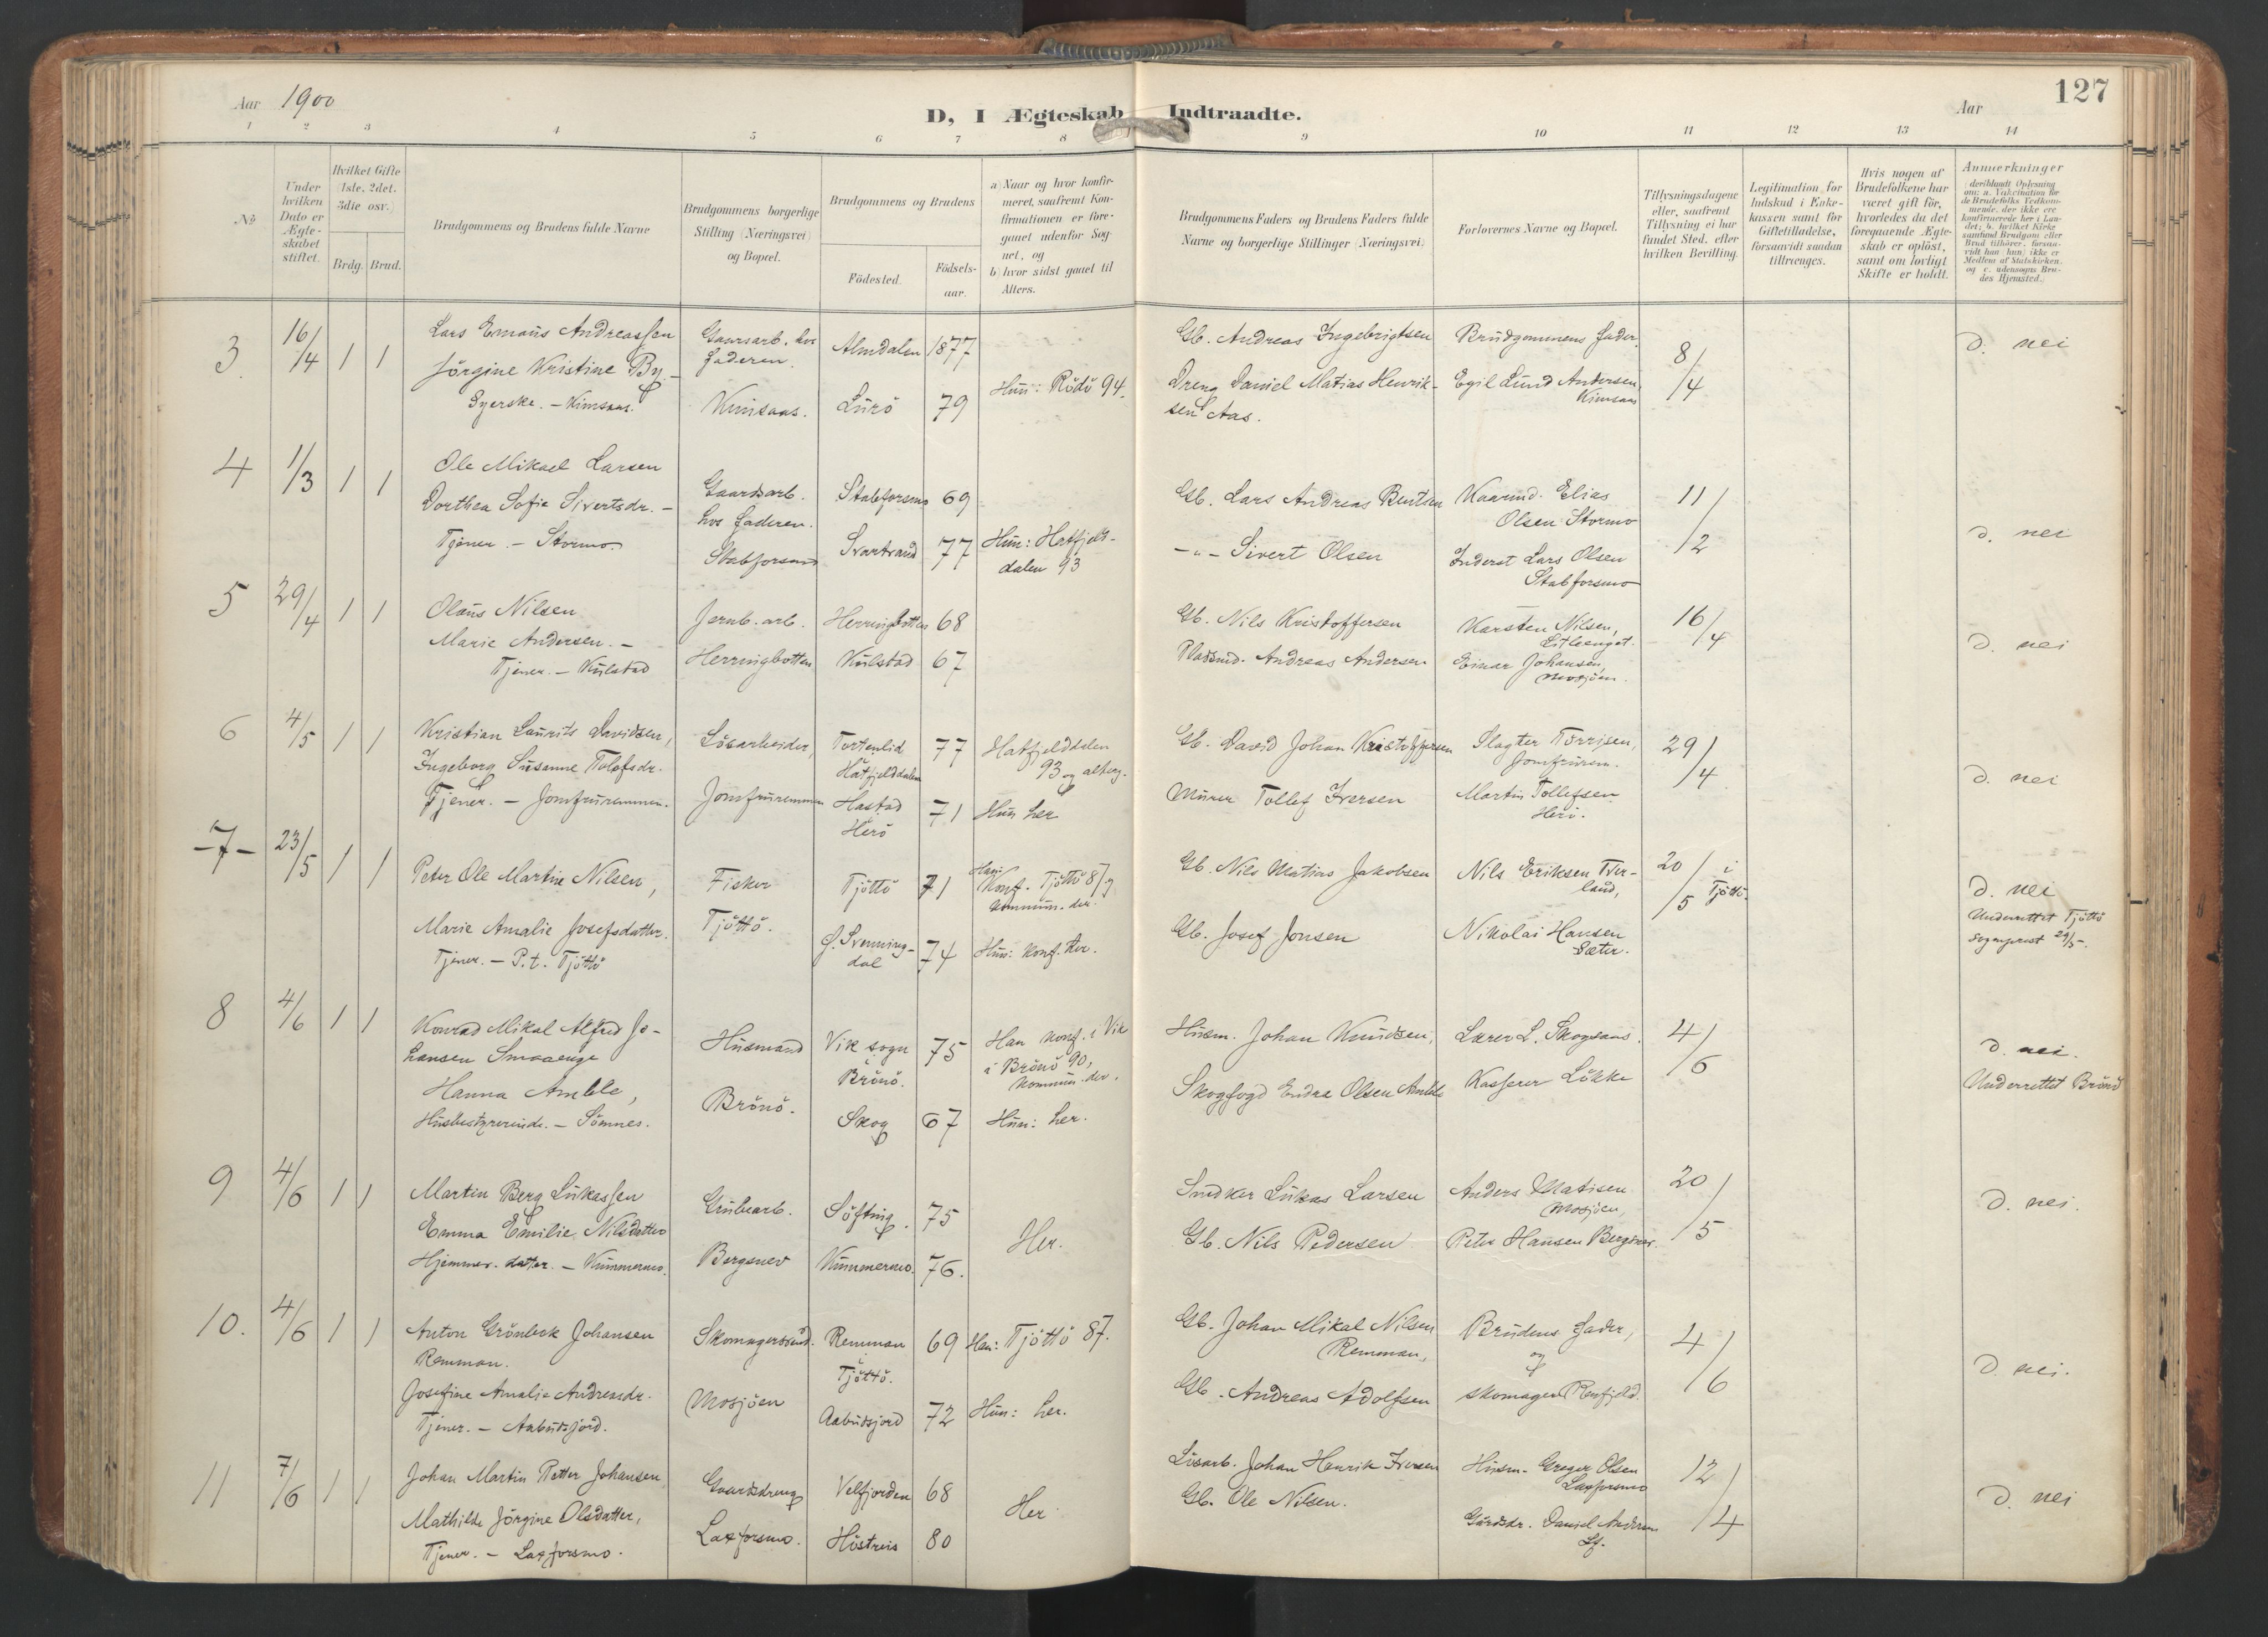 Aar 1900
D, I Ægteskab Indtraadte.
Aar
127
1 2 3 4 5 6 7 8 9 10 11 12 13 14
No
Under hvilken Dato er Ægteskabet stiftet.
Hvilket Gifte (1ste, 2det, 3die osv.)
Brdg. Brud.
Brudgommens og Brudens fulde Navne
Brudgommens borgerlige Stilling (Næringsvei) og Bopæl.
Brudgommens og Brudens
Födested.
Födsels-aar.
a) Naar og hvor konfirmeret, saafremt Konfirmationen er foregaaet udenfor Sognet, og
b) hvor sidst gaaet til Alters.
Brudgommens Faders og Brudens Faders fulde Navne og borgerlige Stillinger (Næringsvei)
Forlovernes Navne og Bopæl.
Tillysningsdagene eller, saafremt Tillysning ei har fundet Sted, efter hvilken Bevilling.
Legitimation for Indskud i Enkekassen samt for Giftetilladelse, forsaavidt saadan tiltrænges.
Hvis nogen af Brudefolkene har været gift för, hvorledes da det foregaaende Ægteskab er oplöst, samt om lovligt Skifte er holdt.
Anmærkninger
(deriblandt Oplysning om: a. Vakcination for de Brudefolks Vedkommende, der ikke ere konfirmerede her i Landet; b. hvilket Kirkesamfund Brudgom eller Brud tilhörer, forsaavidt han (hun) ikke er Medlem af Statskirken, og c. udensogns Brudes Hjemsted.
3 16/4 1 1
Lars Emaüs Andreassen
Jörgine Kristine By
Syerske. – Kimsaas.
Gaardsarb. hos
Faderen.
Kimsaas.
Almdalen 1877
Lürö 79
Hün: Rödö 94.
Gb. Andreas Ingebrigtsen
Dreng Daniel Matias Henrik-
sen Aas.
Brüdgommens Fader.
Egil Lünd Andersen,
Kimsaas
8/4
d. nei
4 1/3 1 1
Ole Mikael Larsen
Dorthea Sofie Sivertsdr. –
Tjener. – Stormo.
Gaardsarb.
hos Faderen.
Stabforsmo
Stabforsmo 69
Svartvand 77
Hün: Hatfjeld-
dalen 93
Gb. Lars Andreas Bentsen
–"– Sivert Olsen
Kaarmd. Elias
Olsen Stormo
Inderst Lars Olsen
Stabforsmo
11/2
d. nei
5 29/4 1 1
Olaüs Nilsen
Marie Andersen. –
Tjener. – Külstad
Jernb. arb.
Herringbotten
Herringbotten 68
Külstad 67
Gb. Nils Kristoffersen
Pladsmd. Andreas Andersen
Karsten Nilsen,
Litleenget.
Einar Johansen,
Mosjöen.
16/4
d. nei
6 4/5 1 1
Kristian Laürits Davidsen,
Ingeborg Süsanne Tolefsdr.
Tjener. – Jomfrüremmen.
Lösarbeider,
Jomfrüremmen
Tortenlid
Hatfjelddalen 77
Hastad
Herö 71
Hatfjelddalen
93 og alterg.
Hün her
Gb. David Johan Kristoffersen
Mürer Tollef Iversen
Slagter Torrisen,
Jomfrürem.
Martin Tollefsen
Herö.
29/4
d. nei
–7– 23/5 1 1
Peter Ole Martin Nilsen,
Marie Amalie Josefsdatter.
Tjener. – P.t. Tjöttö
Fisker
Tjöttö.
Tjöttö 71
Ö. Svenning-
dal 74
Han:
Konf. Tjöttö 87
Kommün. der.
Hün: konf. her.
Gb. Nils Matias Jakobsen
Gb. Josef Jonsen
Nils Eriksen Tver-
land,
Nikolai Hansen
Sæter.
20/5 i Tjöttö.
d. nei
Underrettet Tjöttö
Sogneprest 29/5–.
8 4/6 1 1
Konrad Mikal Alfred Jo-
hansen Smaaenge
Hanna Amble,
Hüsbestyrerinde. – Sömnes.
Hüsmand
Brönö.
Vik sogn
i
Brönö. 75
Skog 67
Han konf. i Vik
i Brönö 90,
Kommün. der.
Hün: her.
Hüsm. Johan Knüdsen,
Skogfogd Endre Olsen Amble
Lærer L. Skogsaas.
Kasserer Lökke
4/6
d. nei.
Underrettet Brönö
9 4/6 1 1
Martin Berg Lükassen
Emma Emilie Nilsdatter
Hjemmev. datter. – Kümmermo.
Grübearb.
Bergsnev
Söfting 75
Kümmermo. 76.
Her.
Snedker Lükas Larsen
Gb. Nils Pedersen
Anders Matisen
Mosjöen,
Peter Hansen Bergsnev.
20/5
d. nei.
10. 4/6 1 1
Anton Grönbek Johansen
Remman.
Josefine Amalie Andreasdr.
Tjener. – Aabüdsjord.
Skomagersvend.
Mosjöen
Remman
i
Tjöttö. 69
Aabüdsjord 72
Han: Tjöttö 87.
Hün: her.
Gb. Johan Mikal Nilsen
Remman,
Gb. Andreas Adolfsen
Brüdens Fader,
og
skomager Renfjeld.
4/6
d. nei.
11 7/6 1 1
Johan Martin Petter Johansen,
Mathilde Jörgine Olsdatter,
Tjener. – Laxforsmo.
Gaardsdreng
Laxforsmo.
Velfjorden 68
Höstreis 80
Her
Lösarb. Johan Henrik Iversen
Gb. Ole Nilsen.
Hüsm. Greger Olsen
Laxforsmo
Gürdsdr. Daniel Andersen
Lf.
12/4
d. nei